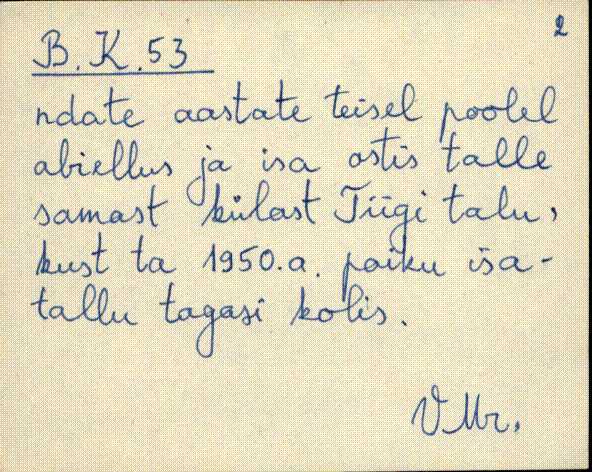 2
B. K. 53
ndate aastate teisel poolel
abiellus ja isa ostis talle
samast külast Tiigi talu,
kust ta 1950.a. paiku isa-
tallu tagasi kolis.
VMr.